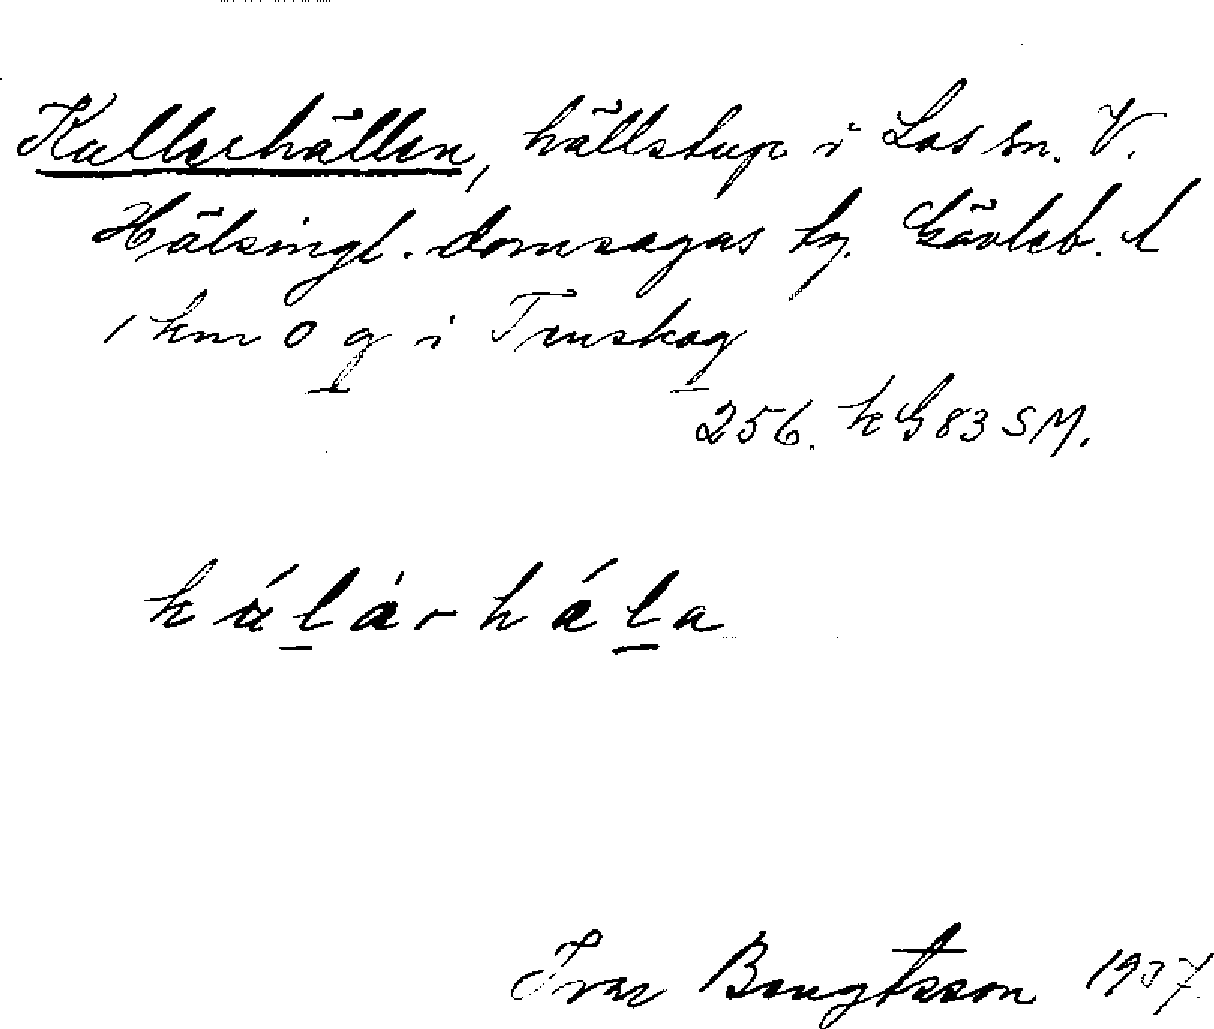 Kullerhällen, hällstup i Los sn. V.
Hälsingl. domsagas tg. Gävleb. l
1 km O g i Truskog
256. k G 83 SM.
kálàrhála
Ivar Bengtsson 1937